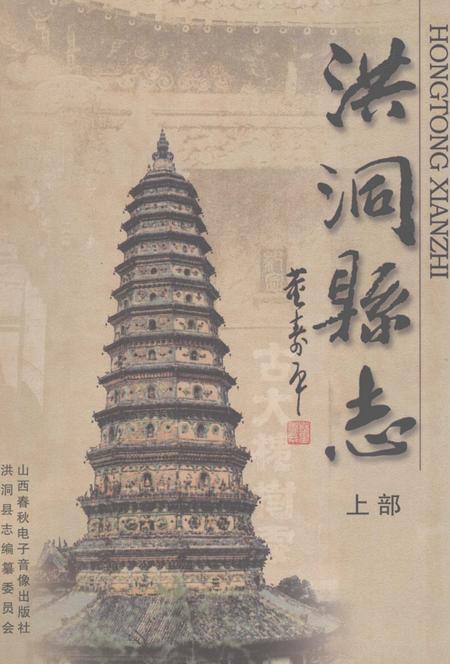 HONGTONG XIANZHI
洪洞縣志
董寿平
上部
古大槐樹處
山西春秋电子音像出版社
洪洞县志编纂委员会